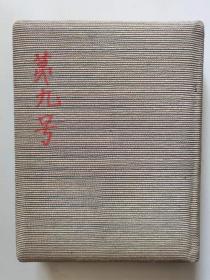 第九号